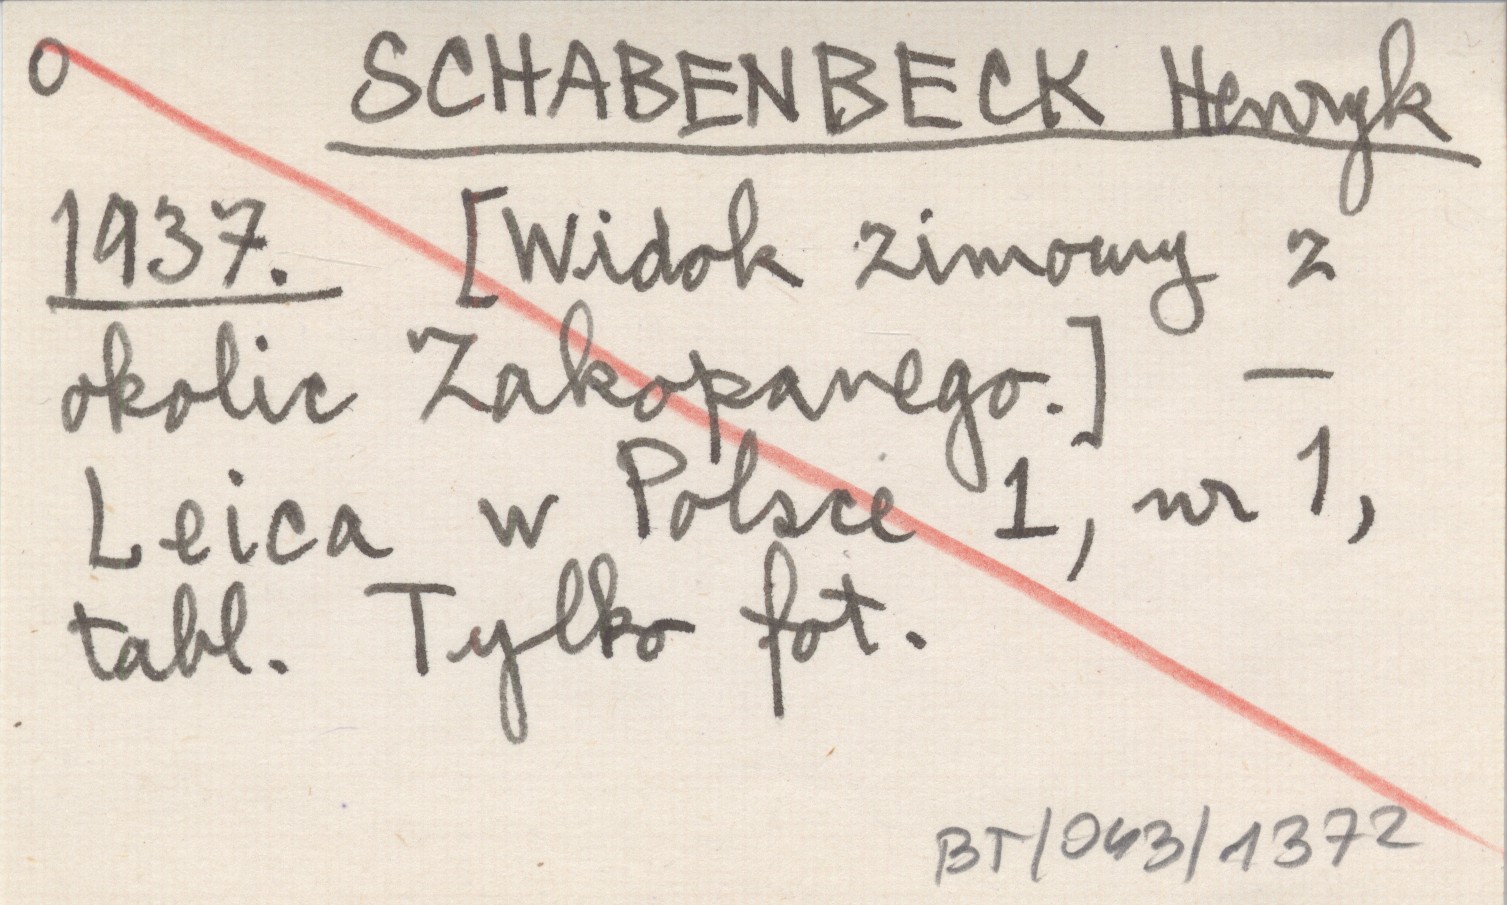 O SCHABENBECK Henryk
1937. [Widok zimowy z
okolic Zakopanego.] —
Leica w Polsce 1, nr 1,
tabl. Tylko fot.
BT/043/1372